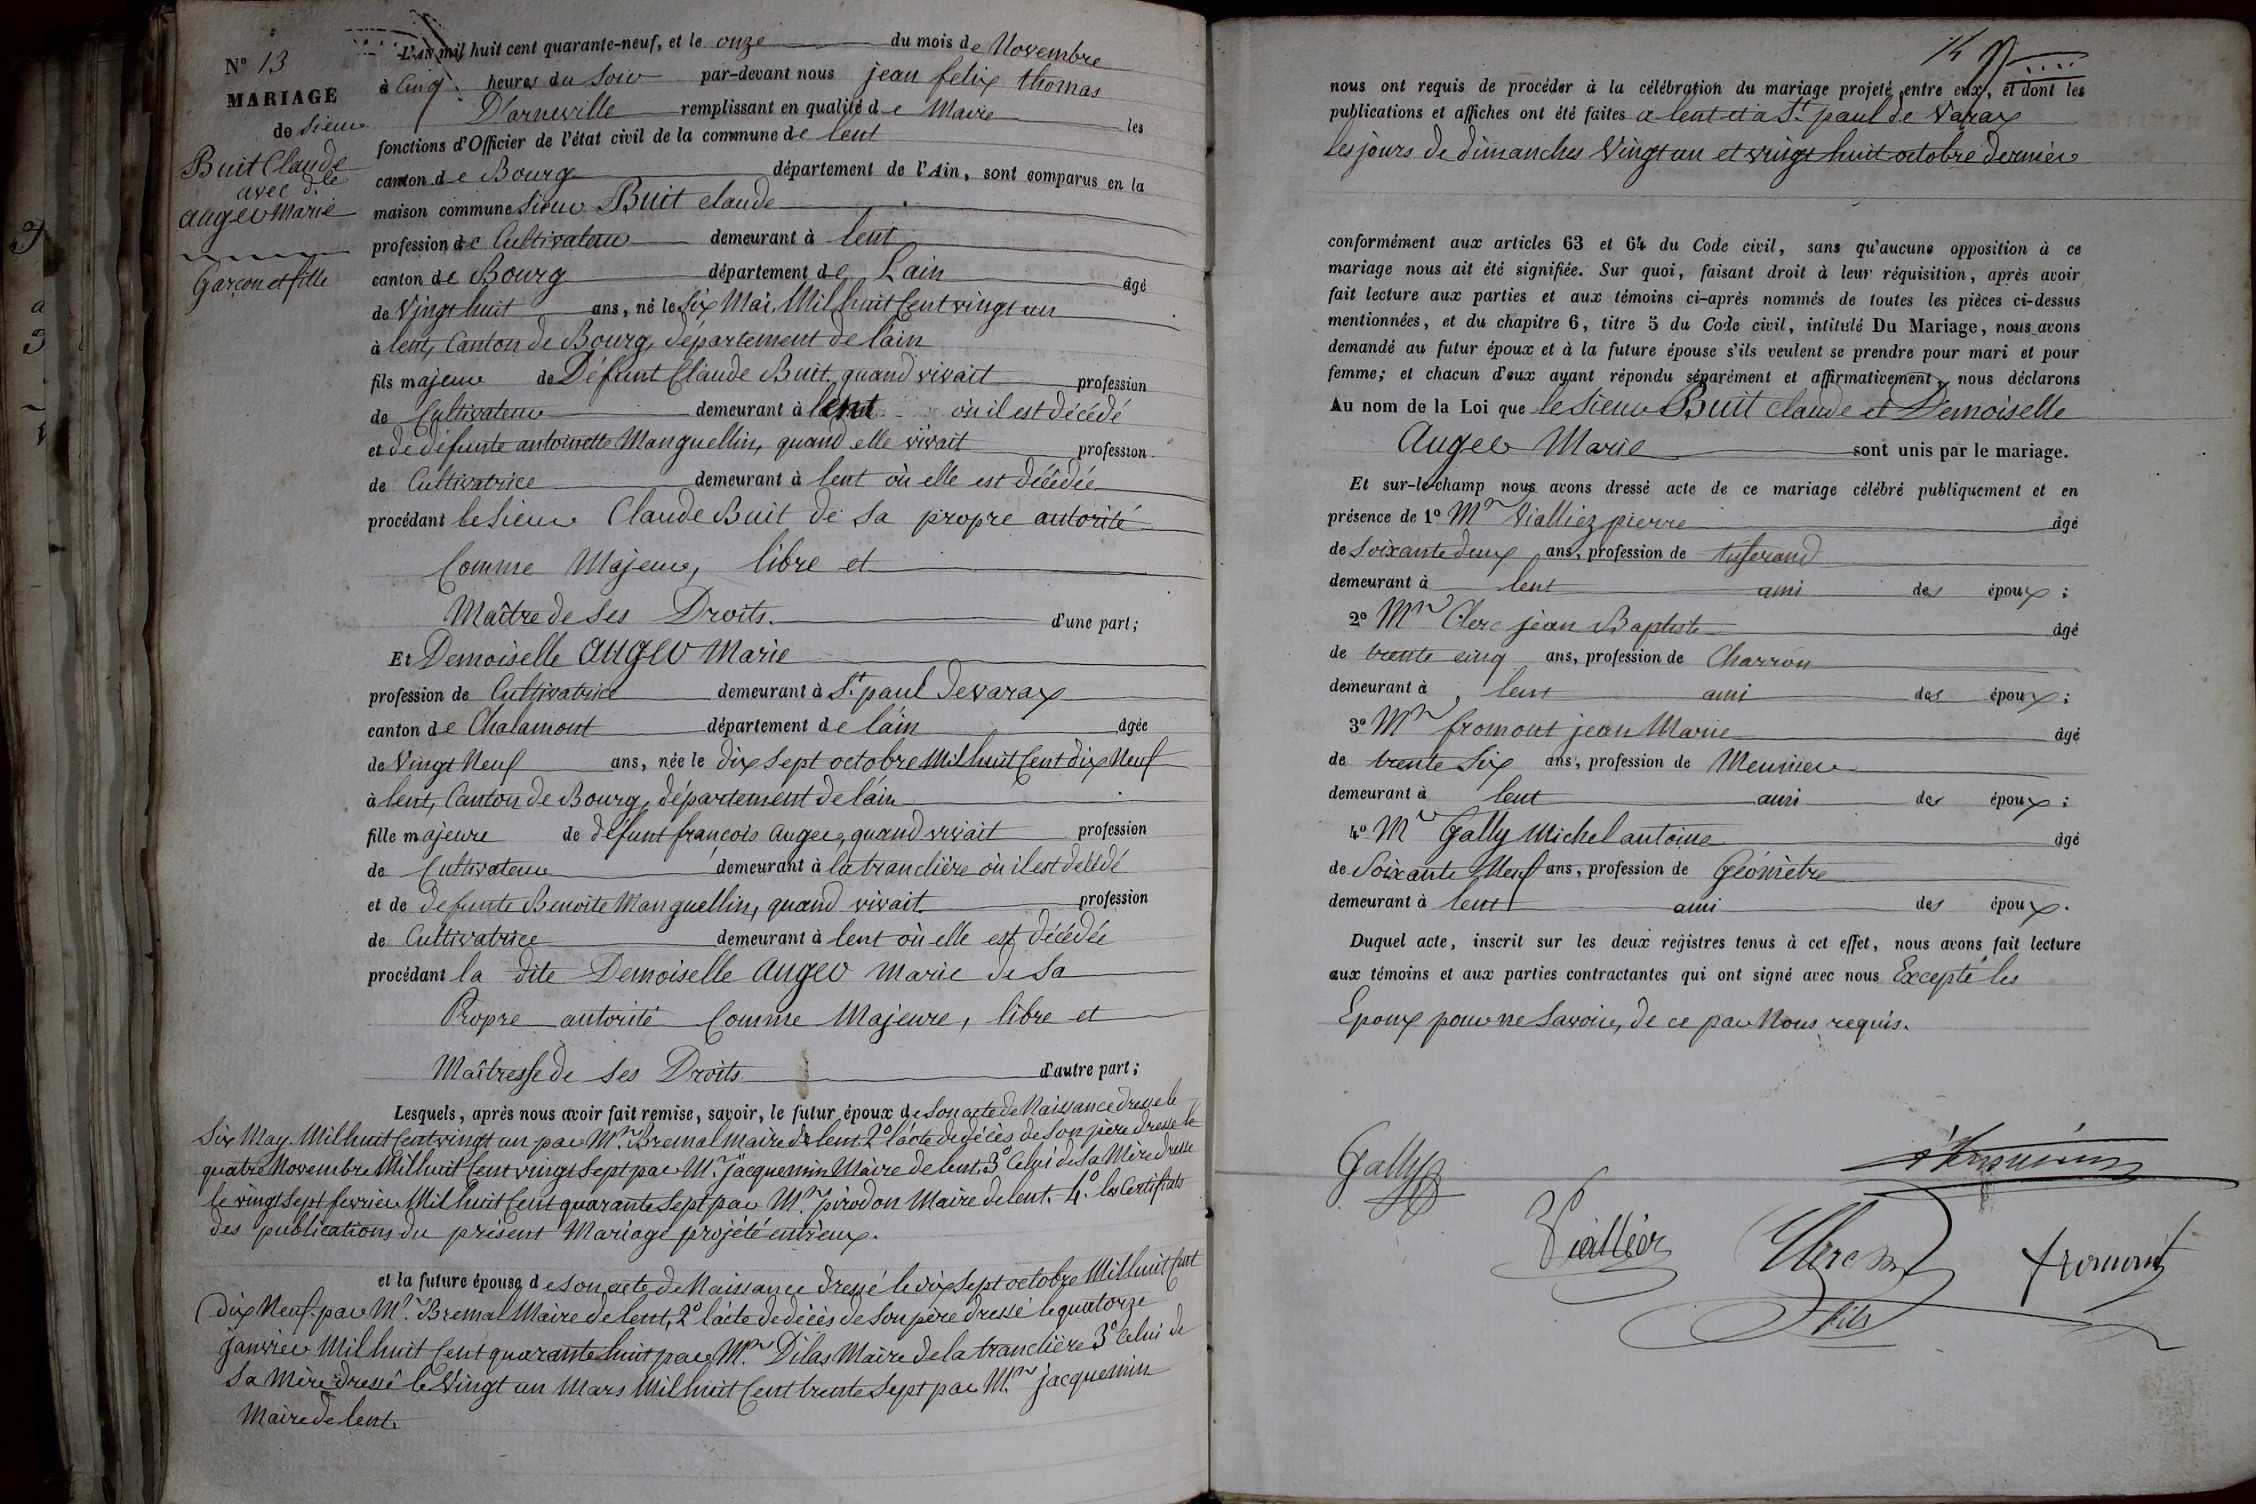 N° 13
MARIAGE
de sieur
Buit Claude
avec dlle
auger Marie
Garçon et fille
L'AN mil huit cent quarante-neuf, et le onze du mois de Novembre
à cinq heures du soir par-devant nous jean felix thomas
D'arneville remplissant en qualité de Maire les
fonctions d'Officier de l'état civil de la commune de lent
canton de Bourg département de l'Ain, sont comparus en la
maison commune sieur Buit claude
profession de Cultivateur demeurant à lent
canton de Bourg département de Lain âgé
de Vingt huit ans, né le Six Mai Mil huit Cent vingt un
à lent, Canton de Bourg, département de lain
fils majeur de Défunt Claude Buit, quand vivait profession
de Cultivateur demeurant à lent où il est décédé
et de défunte antoinette Manguellin, quand elle vivait profession
de Cultivatrice demeurant à lent où elle est décédée
procédant le Sieur Claude Buit de sa propre autorité
Comme Majeur, libre et
Maître de ses Droits. d'une part;
Et Demoiselle auger Marie
profession de Cultivatrice demeurant à St paul devarax
canton de Chalamont département de lain âgée
de Vingt Neuf ans, née le dix sept octobre Mil huit Cent dix Neuf
à lent, Canton de Bourg, département de l'ain
fille majeure de défunt francois auger, quand vivait profession
de Cultivateur demeurant à la tranclière où il est décédé
et de défunte Benoite Manguellin, quand vivait profession
de Cultivatrice demeurant à lent où elle est décédée
procédant la dite Demoiselle auger marie de sa
Propre autorité Comme Majeure, libre et
Maîtresse de ses Droits d'autre part;
Lesquels, après nous avoir fait remise, savoir, le futur époux de son acte de Naissance dressé le
Six May Mil huit Cent vingt un par Mr Bremal maire de lent 2° l'acte de décès de son père dressé le
quatre Novembre Mil huit Cent vingt sept par Mr jacquemin Maire de lent. 3° Celui de sa Mère dressé
le vingt sept fevrier Mil huit Cent quarante sept par Mr pirodon Maire de lent. 4° les Certificats
des publications du présent Mariage projété entreux.
et la future épouse de son acte de Naissance dressé le dix sept octobre Mil huit Cent
dix Neuf par Mr Bremal Maire de lent, 2° l'acte de décès de son père dressé le quatorze
janvier Mil huit Cent quarante huit par Mr Dilas Maire de la tranclière 3° Celui de
sa Mère dressé le Vingt un Mars Mil huit Cent trente sept par Mr jacquemin
Maire de lent.
14
nous ont requis de procéder à la célébration du mariage projeté entre eux, et dont les
publications et affiches ont été faites a lent et a St paul de Varax
les jours de dimanches Vingt un et vingt huit octobre dernier
conformément aux articles 63 et 64 du Code civil, sans qu'aucune opposition à ce
mariage nous ait été signifiée. Sur quoi, faisant droit à leur réquisition, après avoir
fait lecture aux parties et aux témoins ci-après nommés de toutes les pièces ci-dessus
mentionnées, et du chapitre 6, titre 5 du Code civil, intitulé Du Mariage, nous avons
demandé au futur époux et à la future épouse s'ils veulent se prendre pour mari et pour
femme; et chacun d'eux ayant répondu séparément et affirmativement, nous déclarons
Au nom de la Loi que le sieur Buit claude et Demoiselle
Auger Marie sont unis par le mariage.
Et sur-le-champ nous avons dressé acte de ce mariage célébré publiquement et en
présence de 1° Mr Vialliez pierre âgé
de Soixante deux ans, profession de tisserand
demeurant à lent ami des époux;
2° Mr Clerc jean Baptiste âgé
de trente cinq ans, profession de Charron
demeurant à lent ami des époux;
3° Mr fromont jean Marie âgé
de trente Six ans, profession de Meunier
demeurant à lent ami des époux;
4° Mr Gally Michel antoine âgé
de Soixante Neuf ans, profession de Géomètre
demeurant à lent ami des époux.
Duquel acte, inscrit sur les deux registres tenus à cet effet, nous avons fait lecture
aux témoins et aux parties contractantes qui ont signé avec nous Excepté les
Epoux pour ne savoir, de ce par Nous requis.
Gally
Viallier
Clerc
fils
fromont